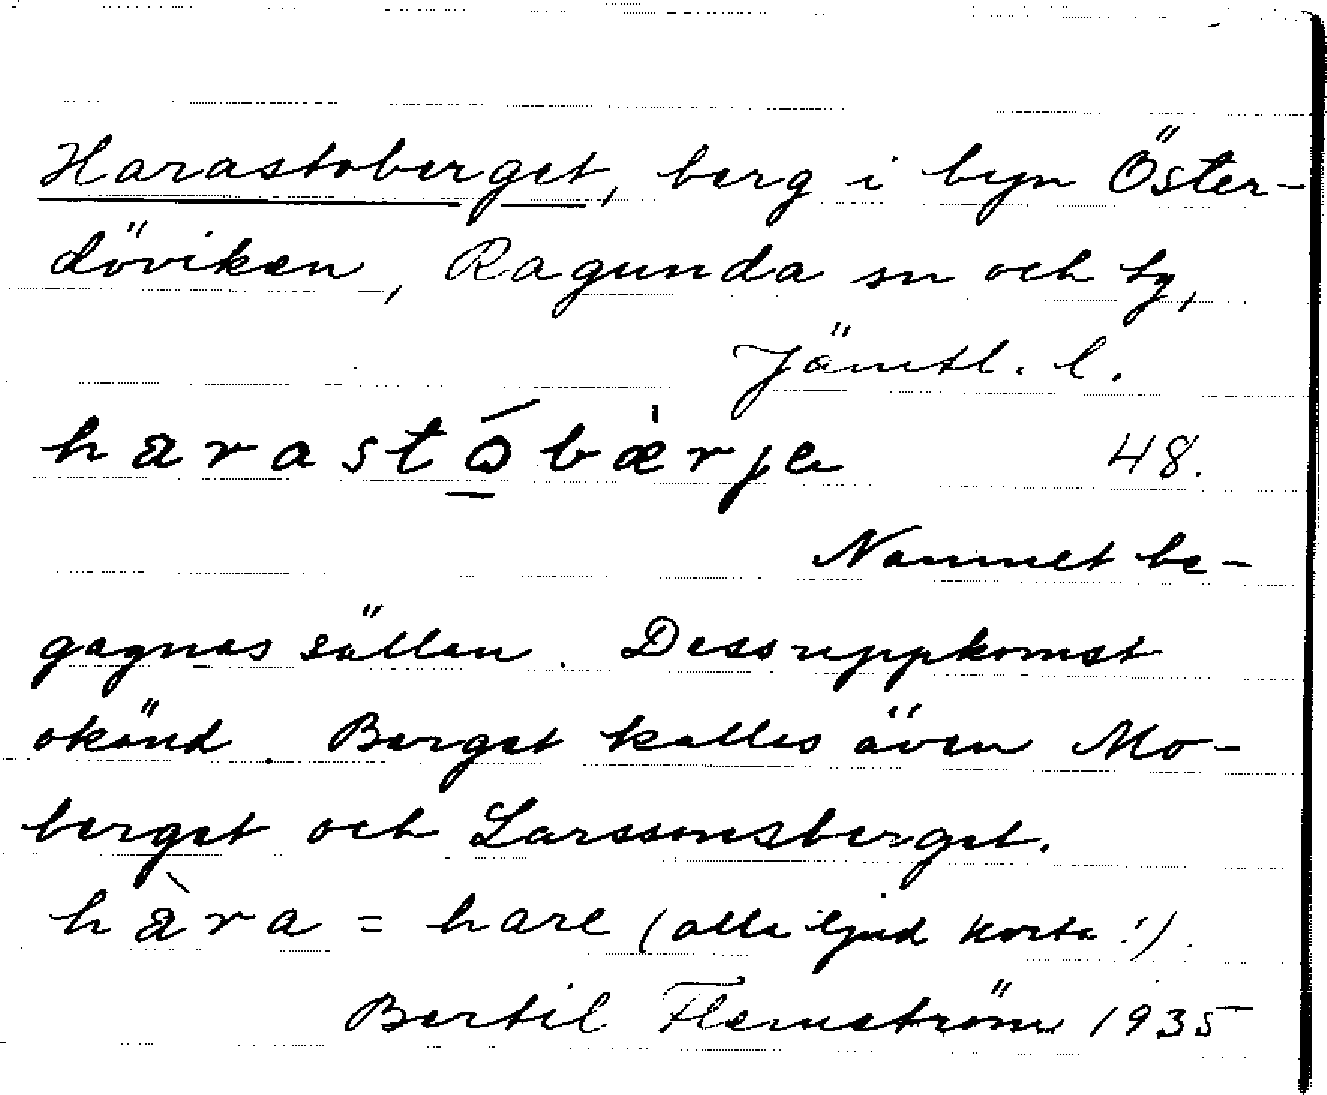 Harastoberget, berg i byn Öster-
döviken, Ragunda sn och tg,
Jämtl. l.
harastǫ́bærje 48.
Namnet be-
gagnas sällan. Dess uppkomst
okänd. Berget kallas även Mo-
berget och Larssonsberget.
hàra = hare (alla ljud korta!).
Bertil Flemström 1935